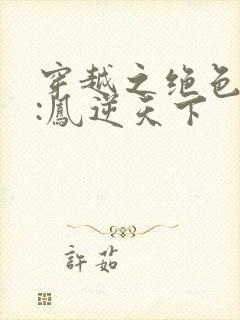 穿越之绝色
:鳳逆天下
許茹